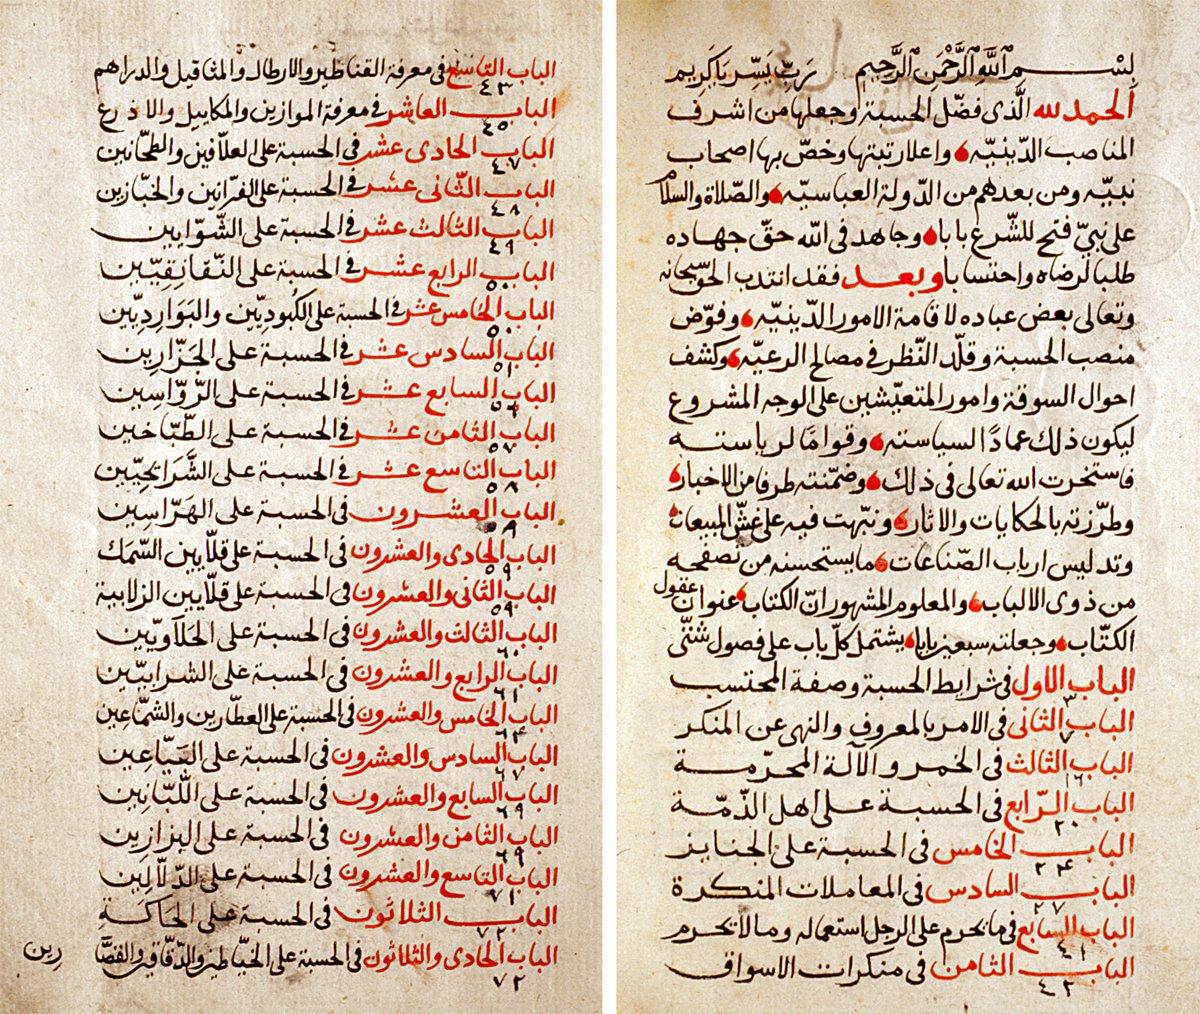 بسم الله الرحمن الرحيم رب يسر يا كريم
الحمد لله الذى فضل الحسبة وجعلها من اشرف
المناصب الدينيه واعلا رتبتها وخصّ بها اصحاب
نبيّه ومن بعدهم من الدولة العباسيّه والصّلاة والسلام
على نبيّ فتح للشّرع بابا وجاهد فى الله حقّ جهاده
طلبا لرضاه واحتسابا وبعد فقد انتدب الحق سبحانه
وتعالى بعض عباده لاقامة الامور الدّينيّه وفوّض
منصب الحسبة وقلّد النّظر فى مصالح الرعيّه وكشف
احوال السوقة وامور المتعيّشين على الوجه المشروع
ليكون ذلك عمادًا لسياسته وقوامًا لرياسته
فاستخرت الله تعالى فى ذلك وضمّنته طرفا من الاخبار
وطرّزته بالحكايات والاثار ونبّهت فيه على غشّ المبيعات
وتدليس ارباب الصّناعات ما يستحسنه من تصفحه
من ذوى الالباب والمعلوم المشهور انّ الكتاب عنوان عقول
الكتّاب وجعلته سبعين بابا يشتمل كلّ باب على فصول شتّى
الباب الاول فى شرايط الحسبة وصفة المحتسب
٣
الباب الثانى فى الامر بالمعروف والنهى عن المنكر
٧
الباب الثالث فى الخمر والآلة المحرّمة
١٦
الباب الرّابع فى الحسبة على اهل الذّمّة
٢٠
الباب الخامس فى الحسبة على الجنايز
٢٤
الباب السادس فى المعاملات المنكرة
٢٧
الباب السابع فى ما يحرم على الرجل استعماله وما لا يحرم
٤١
الباب الثامن فى منكرات الاسواق
٤٢
الباب التاسع فى معرفة القناطير والارطال والمثاقيل والدراهم
٤٣
الباب العاشر فى معرفة الموازين والمكاييل والاذرع
٤٥
الباب الحادى عشر فى الحسبة على العلافين والطحّانين
٤٧
الباب الثّانى عشر فى الحسبة على الفرّانين والخبّازين
٤٨
الباب الثالث عشر فى الحسبة على الشّوّايين
٤٩
الباب الرابع عشر فى الحسبة على النّقانِقِيّين
٥٠
الباب الخامس عشر فى الحسبة على الكُبُودِيّين والبَوَارِدِيّين
٥٠
الباب السادس عشر فى الحسبة على الجَزّارين
٥١
الباب السابع عشر فى الحسبة على الرّوّاسين
٥٦
الباب الثامن عشر فى الحسبة على الطّبّاخين
٥٧
الباب التاسع عشر فى الحسبة على الشَّرَايحيّين
٥٨
الباب العشرون فى الحسبة على الهَرّاسين
الباب الحادى والعشرون فى الحسبة على قلاّيين السّمَك
٥٩
الباب الثانى والعشرون فى الحسبة على قلاّيين الزلابية
٥٩
الباب الثالث والعشرون فى الحسبة على الحَلاَويّين
٦٠
الباب الرابع والعشرون فى الحسبة على الشرابيّين
٦١
الباب الخامس والعشرون فى الحسبة على العطّارين والشمّاعين
٦٤
الباب السادس والعشرون فى الحسبة على البيّاعين
٦٧
الباب السابع والعشرون فى الحسبة على اللّبّانين
٦٩
الباب الثامن والعشرون فى الحسبة على البزازين
٦٩
الباب التاسع والعشرون فى الحسبة على الدّلّالين
٧١
الباب الثلاثون فى الحسبة على الحَاكَة
٧٢
الباب الحادى والثلاثون فى الحسبة على الخيّاطين والدّقّاقين والقصّا رين
٧٢